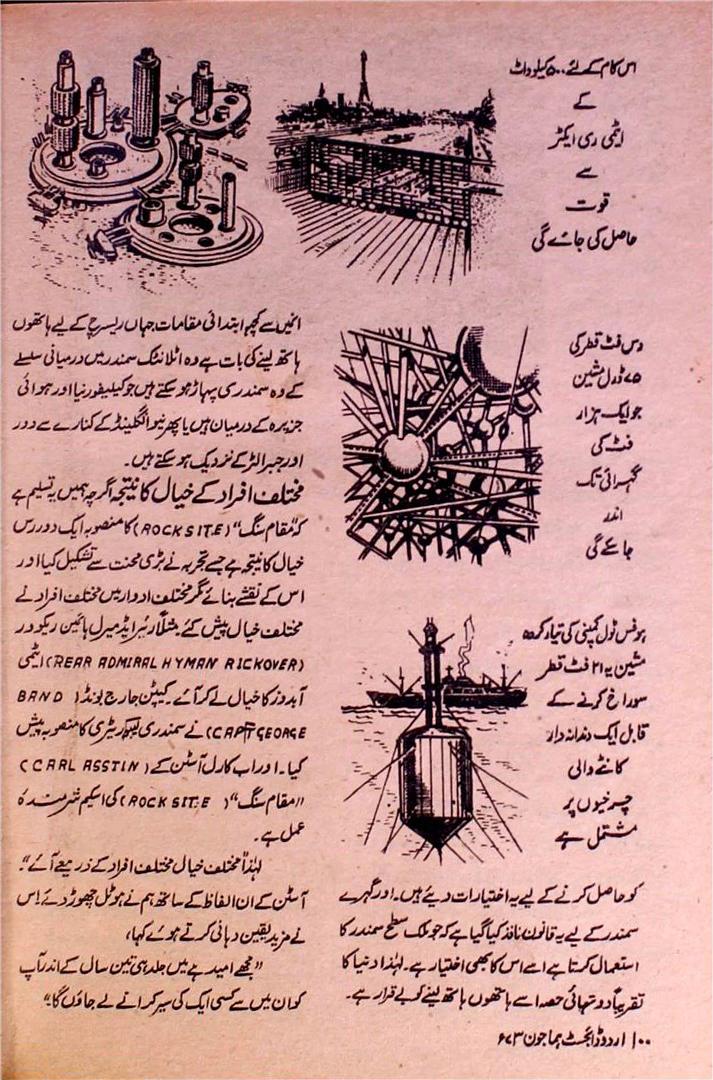 اس کام کے لئے ۵۰۰ کیلو واٹ
کے
ایٹمی ری ایکٹر
سے
قوت
حاصل کی جائے گی
دس فٹ قطر کی
۷۵ ٹول مشین
جو ایک ہزار
فٹ کی
گہرائی تک
اندر
جا سکے گی
ہوفس ٹول کمپنی کی تیار کردہ
مشین یہ ۲۱ فٹ قطر
سوراخ کرنے کے
قابل ایک دندانہ دار
کاٹنے والی
چرخیوں پر
مشتمل ہے
کو حاصل کرنے کے لیے یہ اختیارات دیئے ہیں۔ اور گہرے
سمندر کے لیے یہ قانون نافذ کیا گیا ہے کہ جو ملک سطح سمندر کا
استعمال کرتا ہے اسے اس کا بھی اختیار ہے۔ لہٰذا دنیا کا
تقریباً دو تہائی حصہ اسے ہاتھوں ہاتھ لینے کو بے قرار ہے۔
انہیں سے کچھ ابتدائی مقامات جہاں ریسرچ کے لیے ہاتھوں
ہاتھ لینے کی بات ہے وہ اٹلانٹک سمندر میں درمیانی سلسلے
کے وہ سمندری پہاڑ ہو سکتے ہیں جو کیلیفورنیا اور ہوائی
جزیرہ کے درمیان ہیں یا پھر نیو انگلینڈ کے کنارے سے دور
اور جبرالٹر کے نزدیک ہو سکتے ہیں۔
مختلف افراد کے خیال کا نتیجہ اگرچہ ہمیں یہ تسلیم ہے
کہ "مقام سنگ" (ROCKSITE) کا منصوبہ ایک دور رس
خیال کا نتیجہ ہے جسے تجربہ نے بڑی محنت سے تشکیل کیا اور
اس کے نقشے بنائے مگر مختلف ادوار میں مختلف افراد نے
مختلف خیال پیش کئے مثلاً رئیر ایڈمیرل ہائمین ریکوور
(REAR ADMIRAL HYMAN RICKOVER) ایٹمی
آبدوز کا خیال لے کر آئے۔ کیپٹن جارج بونڈ (BAND
CAPT GEORGE) نے سمندری لیبوریٹری کا منصوبہ پیش
کیا۔ اور اب کارل آسٹن کے (CARL ASSTIN)
"مقام سنگ" (ROCKSITE) کی اسکیم شرمندۂ
عمل ہے۔
لہٰذا "مختلف خیال مختلف افراد کے ذریعے آئے"۔
آسٹن کے ان الفاظ کے ساتھ ہم نے ہوٹل چھوڑ دئے۔ اس
نے مزید یقین دہانی کرتے ہوئے کہا،
"مجھے امید ہے میں جلد ہی تین سال کے اندر آپ
کو ان میں سے کسی ایک کی سیر کرانے لے جاؤں گا۔"
۱۰۰ اردو ڈائجسٹ ہما جون ۶۷۳